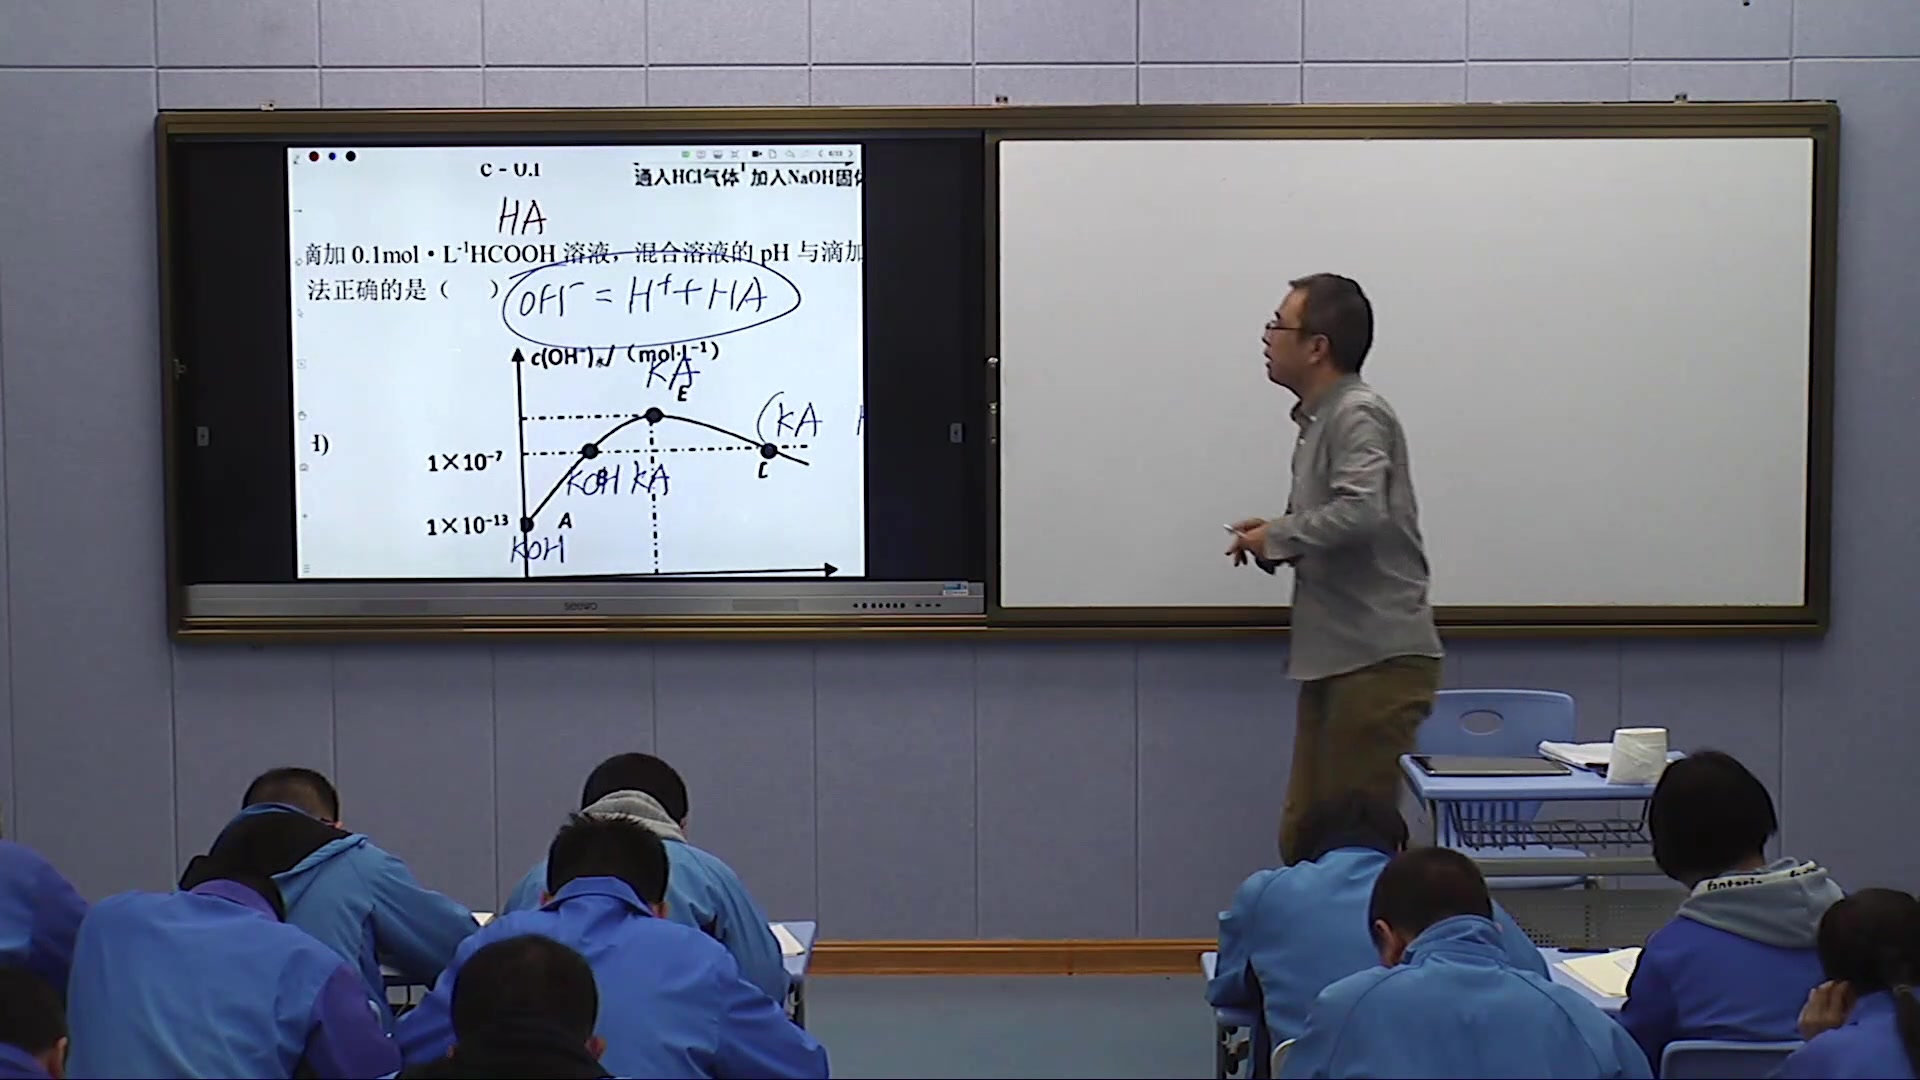 c - 0.1
通入HCl气体 加入NaOH固体
HA
滴加 0.1mol·L⁻¹HCOOH 溶液，混合溶液的 pH 与滴加
法正确的是（ ）
OH⁻ = H⁺ + HA
c(OH⁻)水/（mol·L⁻¹）
KA
E
(KA
1×10⁻⁷
C
KOH KA
1×10⁻¹³
A
KOH
seewo